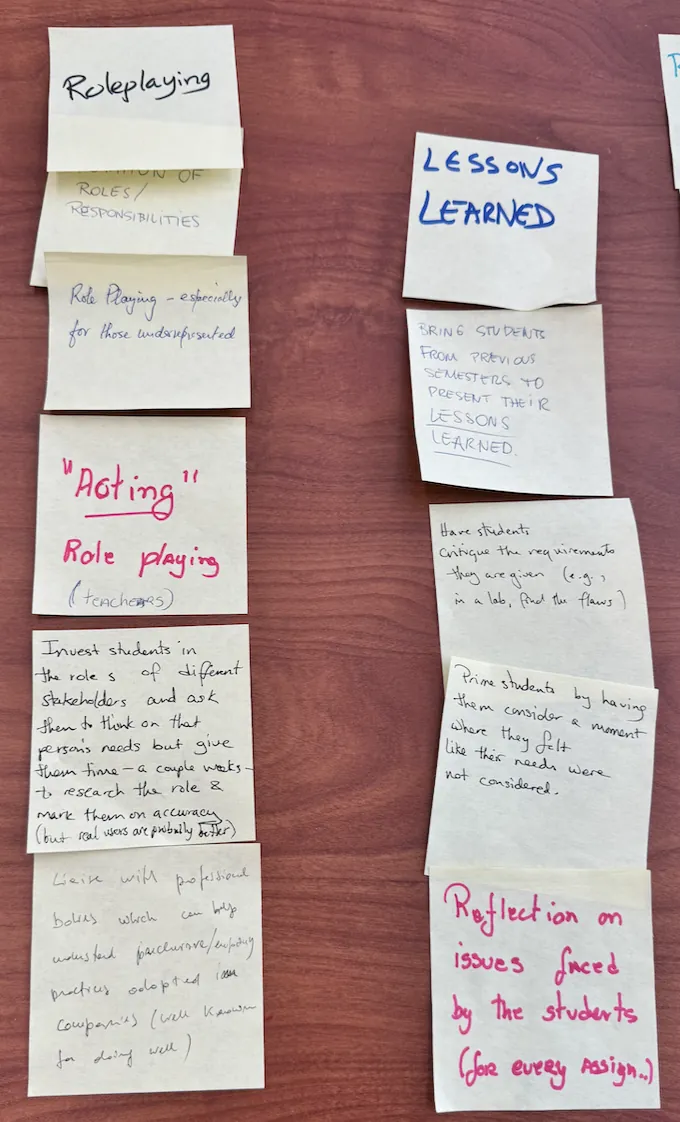 Roleplaying
OF
ROLES/
RESPONSIBILITIES
Role Playing – especially
for those underrepresented
"Acting"
Role playing
(teachers)
Invest students in
the roles of different
stakeholders and ask
them to think on that
person's needs but give
them time – a couple weeks –
to research the role &
mark them on accuracy
(but real users are probably better)
Liaise with professional
bodies which can help
understand
practices adopted
companies (well known
for doing well)
LESSONS
LEARNED
BRING STUDENTS
FROM PREVIOUS
SEMESTERS TO
PRESENT THEIR
LESSONS
LEARNED.
Have students
critique the requirements
they are given (e.g.,
in a lab, find the flaws)
Prime students by having
them consider a moment
where they felt
like their needs were
not considered.
Reflection on
issues faced
by the students
(for every Assign..)